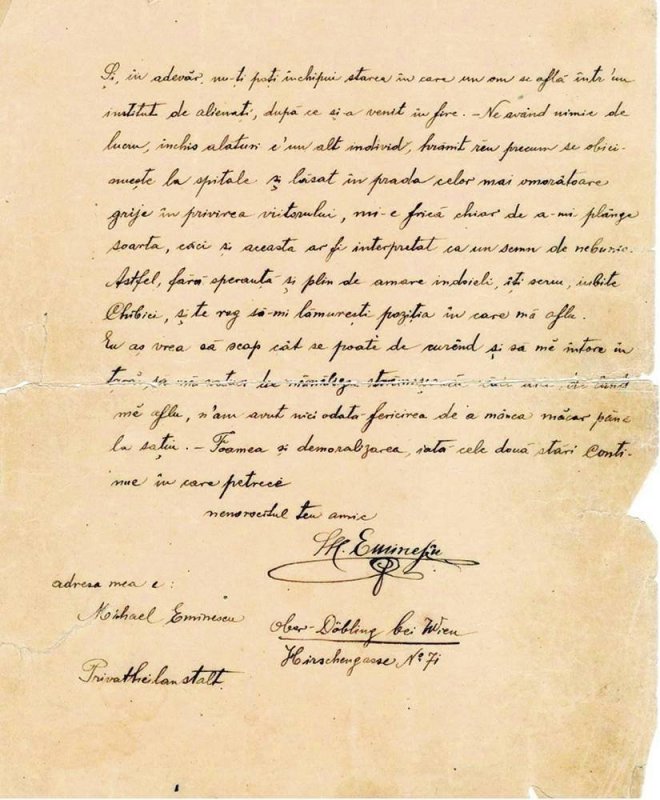 Și, în adevăr, nu-ți poți închipui starea în care un om se află într'un
institut de alienați, după ce și-a venit în fire. - Ne având nimic de
lucru, închis alături c'un alt individ, hrănit rĕu precum se obici-
nuește la spitale și lăsat în prada celor mai omorâtoare
grije în privirea viitorului, mi-e frică chiar de a-mi plânge
soarta, căci și aceasta ar fi interpretat ca un semn de nebunie.
Astfel, fără speranță și plin de amare îndoieli, îți scriu, iubite
Chibici, și te rog să-mi lămurești poziția în care mă aflu.
Eu aș vrea să scap cât se poate de curênd și să mĕ întorc în
țară, să mă satur de mămăligă strămoșească căci aici, de când
mĕ aflu, n'am avut nici odată fericirea de a mânca măcar pâne
la sațiu. - Foamea și demoralizarea, iată cele două stări conti-
nue în care petrece
nenorocitul tĕu amic
M. Eminescu
adresa mea e:
Michael Eminescu
Ober-Döbling bei Wien
Hirschengasse No 71
Privatheilanstalt.